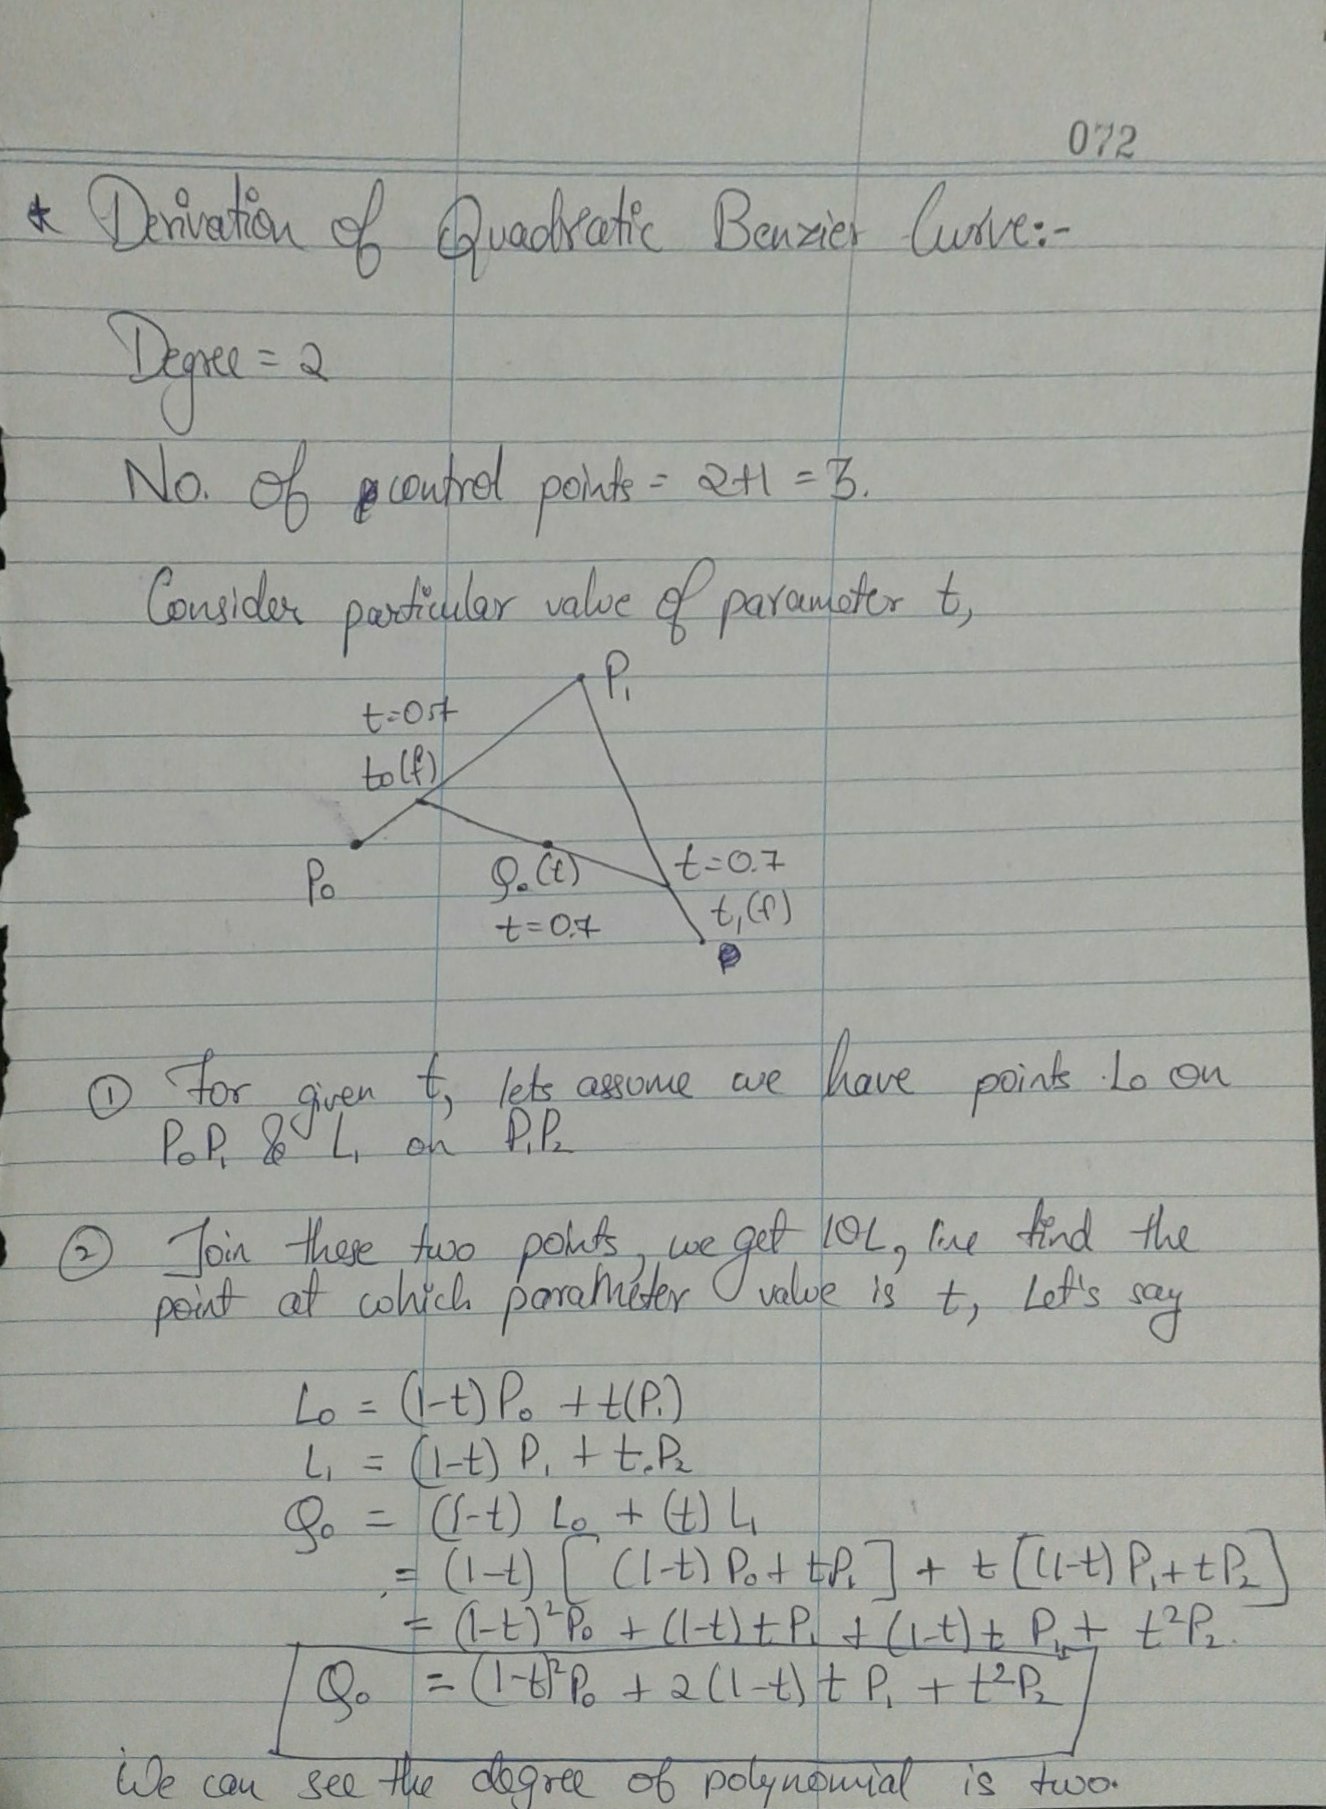 072
* Derivation of Quadratic Benzier Curve:-
Degree = 2
No. of control points = 2+1 = 3.
Consider particular value of parameter t,
P₁
t=0.7
t₀(f)
P₀
Q₀(t)
t=0.7
t=0.7
t₁(f)
① For given t, lets assume we have points L₀ on
P₀P₁ & L₁ on P₁P₂
② Join these two points, we get line find the
point at which parameter value is t, Let's say
L₀ = (1-t)P₀ + t(P₁)
L₁ = (1-t) P₁ + t.P₂
Q₀ = (1-t) L₀ + (t) L₁
= (1-t) [ (1-t) P₀ + tP₁ ] + t [(1-t) P₁ + tP₂]
= (1-t)²P₀ + (1-t) t P₁ + (1-t) t P₁ + t²P₂.
Q₀ = (1-t)²P₀ + 2(1-t) t P₁ + t²P₂
We can see the degree of polynomial is two.